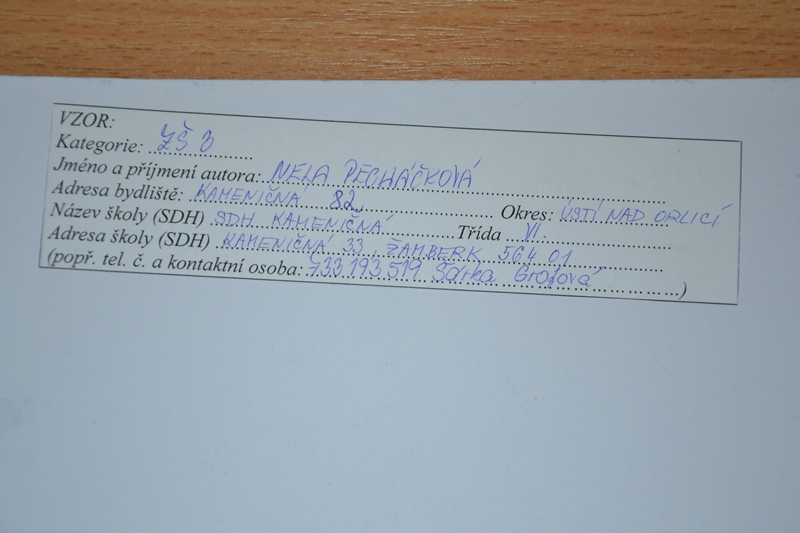 VZOR:
Kategorie: ZŠ 3
Jméno a příjmení autora: NELA PECHÁČKOVÁ
Adresa bydliště: KAMENIČNÁ 82 Okres: ÚSTÍ NAD ORLICÍ
Název školy (SDH) SDH KAMENIČNÁ Třída VI.
Adresa školy (SDH) KAMENIČNÁ 33, ŽAMBERK 564 01
(popř. tel. č. a kontaktní osoba: 733 193 519 Šárka Grofová)